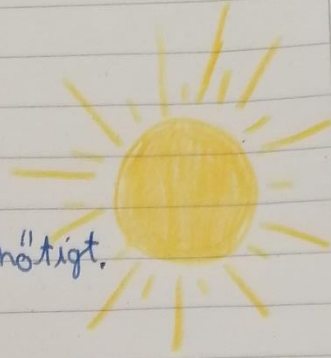 nötigt.